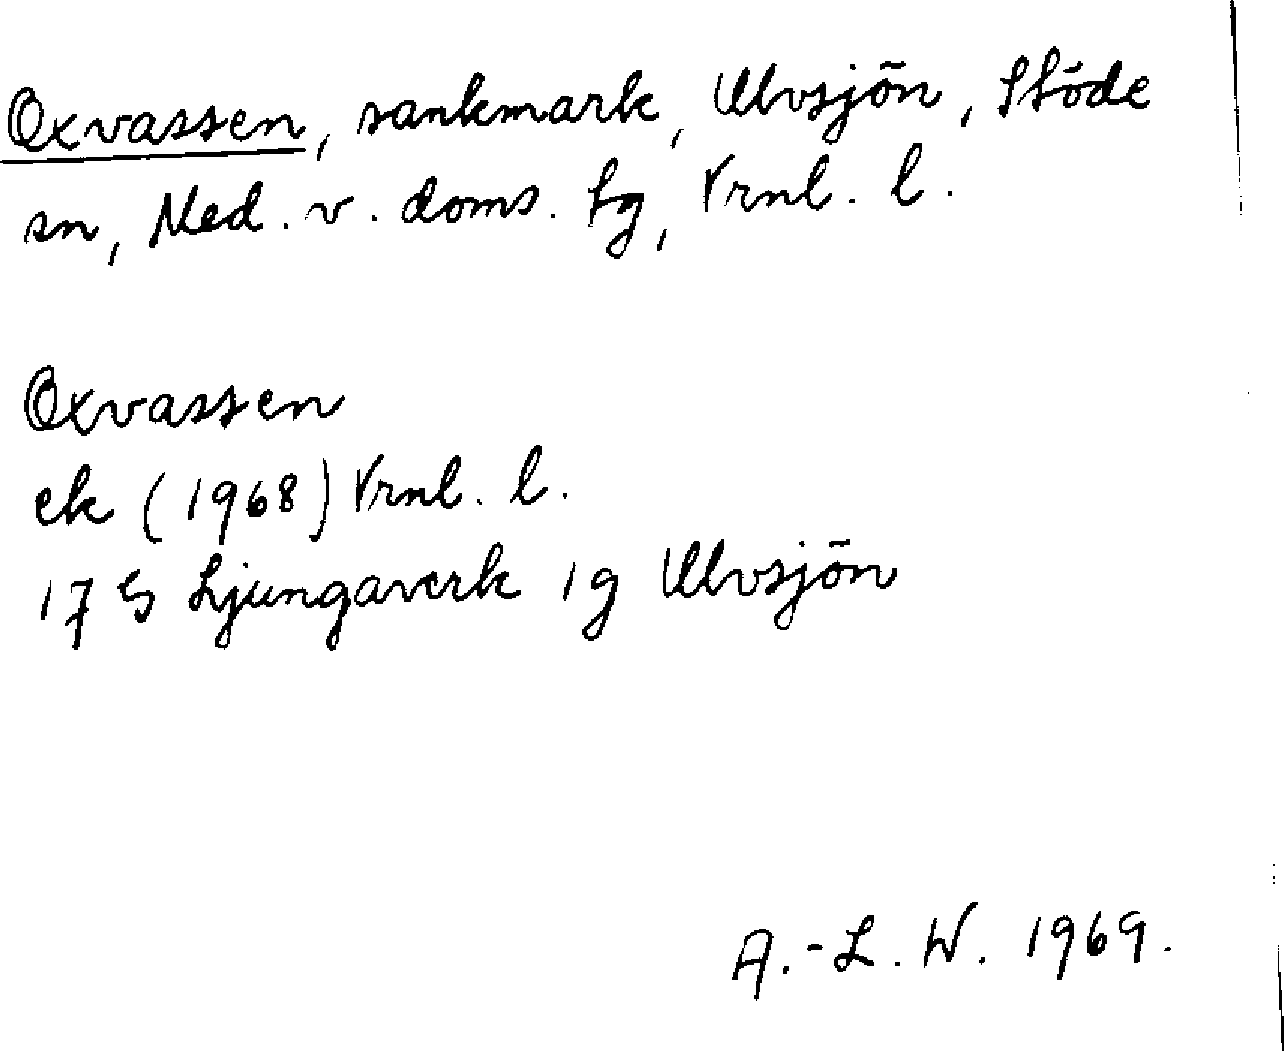 Oxvassen, sankmark, Ulvsjön, Stöde
sn, Med. v. doms. tg, Vrnl. l.
Oxvassen
ek (1968) Vrnl. l.
17 G Ljungaverk 1g Ulvsjön
A.-L. W. 1969.